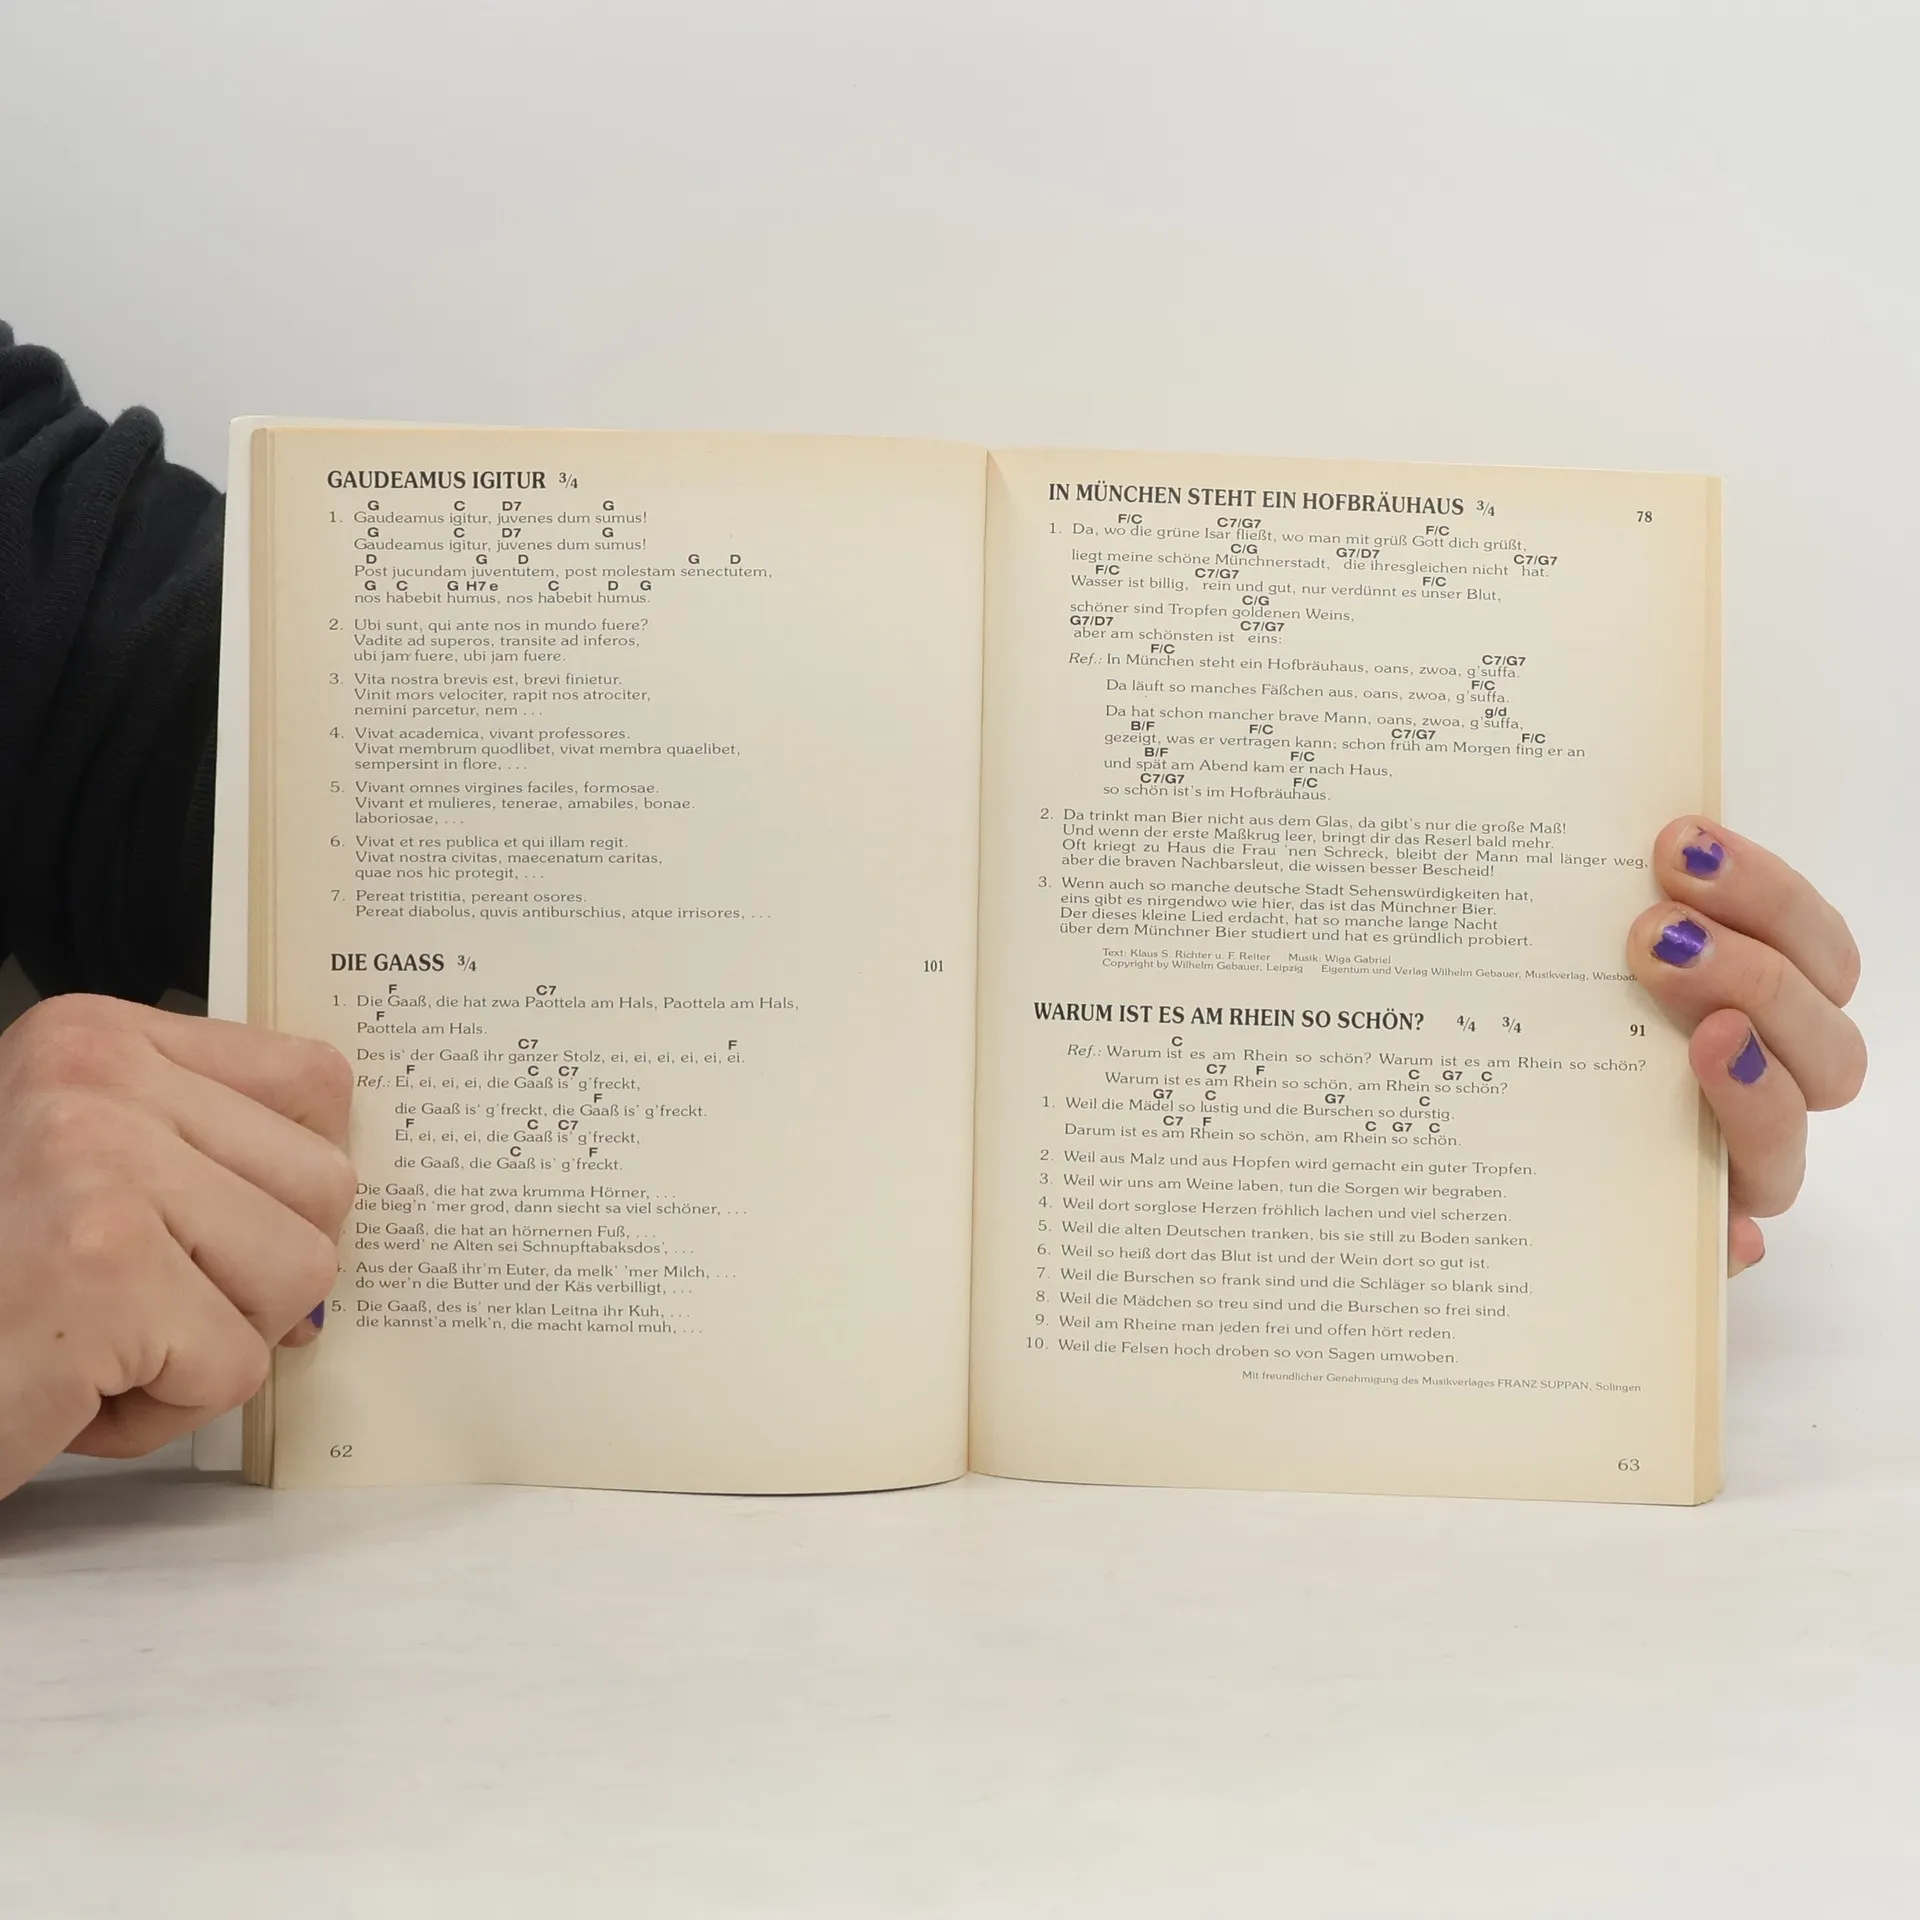 GAUDEAMUS IGITUR 3/4
G C D7 G
1. Gaudeamus igitur, juvenes dum sumus!
G C D7 G
Gaudeamus igitur, juvenes dum sumus!
D G D G D
Post jucundam juventutem, post molestam senectutem,
G C G H7 e C D G
nos habebit humus, nos habebit humus.
2. Ubi sunt, qui ante nos in mundo fuere?
Vadite ad superos, transite ad inferos,
ubi jam fuere, ubi jam fuere.
3. Vita nostra brevis est, brevi finietur.
Vinit mors velociter, rapit nos atrociter,
nemini parcetur, nem ...
4. Vivat academica, vivant professores.
Vivat membrum quodlibet, vivat membra quaelibet,
sempersint in flore, ...
5. Vivant omnes virgines faciles, formosae.
Vivant et mulieres, tenerae, amabiles, bonae.
laboriosae, ...
6. Vivat et res publica et qui illam regit.
Vivat nostra civitas, maecenatum caritas,
quae nos hic protegit, ...
7. Pereat tristitia, pereant osores.
Pereat diabolus, quvis antiburschius, atque irrisores, ...
DIE GAASS 3/4 101
F C7
1. Die Gaaß, die hat zwa Paottela am Hals, Paottela am Hals,
F
Paottela am Hals.
C7 F
Des is' der Gaaß ihr ganzer Stolz, ei, ei, ei, ei, ei, ei.
F C C7
Ref.: Ei, ei, ei, ei, die Gaaß is' g'freckt,
F
die Gaaß is' g'freckt, die Gaaß is' g'freckt.
F C C7
Ei, ei, ei, ei, die Gaaß is' g'freckt,
C F
die Gaaß, die Gaaß is' g'freckt.
Die Gaaß, die hat zwa krumma Hörner, ...
die bieg'n 'mer grod, dann siecht sa viel schöner, ...
Die Gaaß, die hat an hörnernen Fuß, ...
des werd' ne Alten sei Schnupftabaksdos', ...
4. Aus der Gaaß ihr'm Euter, da melk' 'mer Milch, ...
do wer'n die Butter und der Käs verbilligt, ...
5. Die Gaaß, des is' ner klan Leitna ihr Kuh, ...
die kannst'a melk'n, die macht kamol muh, ...
62
IN MÜNCHEN STEHT EIN HOFBRÄUHAUS 3/4 78
F/C C7/G7 F/C
1. Da, wo die grüne Isar fließt, wo man mit grüß Gott dich grüßt,
C/G G7/D7 C7/G7
liegt meine schöne Münchnerstadt, die ihresgleichen nicht hat.
F/C C7/G7 F/C
Wasser ist billig, rein und gut, nur verdünnt es unser Blut,
C/G
schöner sind Tropfen goldenen Weins,
G7/D7 C7/G7
aber am schönsten ist eins:
F/C C7/G7
Ref.: In München steht ein Hofbräuhaus, oans, zwoa, g'suffa.
F/C
Da läuft so manches Fäßchen aus, oans, zwoa, g'suffa.
g/d
Da hat schon mancher brave Mann, oans, zwoa, g'suffa,
B/F F/C C7/G7 F/C
gezeigt, was er vertragen kann; schon früh am Morgen fing er an
B/F F/C
und spät am Abend kam er nach Haus,
C7/G7 F/C
so schön ist's im Hofbräuhaus.
2. Da trinkt man Bier nicht aus dem Glas, da gibt's nur die große Maß!
Und wenn der erste Maßkrug leer, bringt dir das Reserl bald mehr.
Oft kriegt zu Haus die Frau 'nen Schreck, bleibt der Mann mal länger weg,
aber die braven Nachbarsleut, die wissen besser Bescheid!
3. Wenn auch so manche deutsche Stadt Sehenswürdigkeiten hat,
eins gibt es nirgendwo wie hier, das ist das Münchner Bier.
Der dieses kleine Lied erdacht, hat so manche lange Nacht
über dem Münchner Bier studiert und hat es gründlich probiert.
Text: Klaus S. Richter u. F. Reiter Musik: Wiga Gabriel
Copyright by Wilhelm Gebauer, Leipzig Eigentum und Verlag Wilhelm Gebauer, Musikverlag, Wiesbad
WARUM IST ES AM RHEIN SO SCHÖN? 4/4 3/4 91
C
Ref.: Warum ist es am Rhein so schön? Warum ist es am Rhein so schön?
C7 F C G7 C
Warum ist es am Rhein so schön, am Rhein so schön?
G7 C G7 C
1. Weil die Mädel so lustig und die Burschen so durstig.
C7 F C G7 C
Darum ist es am Rhein so schön, am Rhein so schön.
2. Weil aus Malz und aus Hopfen wird gemacht ein guter Tropfen.
3. Weil wir uns am Weine laben, tun die Sorgen wir begraben.
4. Weil dort sorglose Herzen fröhlich lachen und viel scherzen.
5. Weil die alten Deutschen tranken, bis sie still zu Boden sanken.
6. Weil so heiß dort das Blut ist und der Wein dort so gut ist.
7. Weil die Burschen so frank sind und die Schläger so blank sind.
8. Weil die Mädchen so treu sind und die Burschen so frei sind.
9. Weil am Rheine man jeden frei und offen hört reden.
10. Weil die Felsen hoch droben so von Sagen umwoben.
Mit freundlicher Genehmigung des Musikverlages FRANZ SUPPAN, Solingen
63